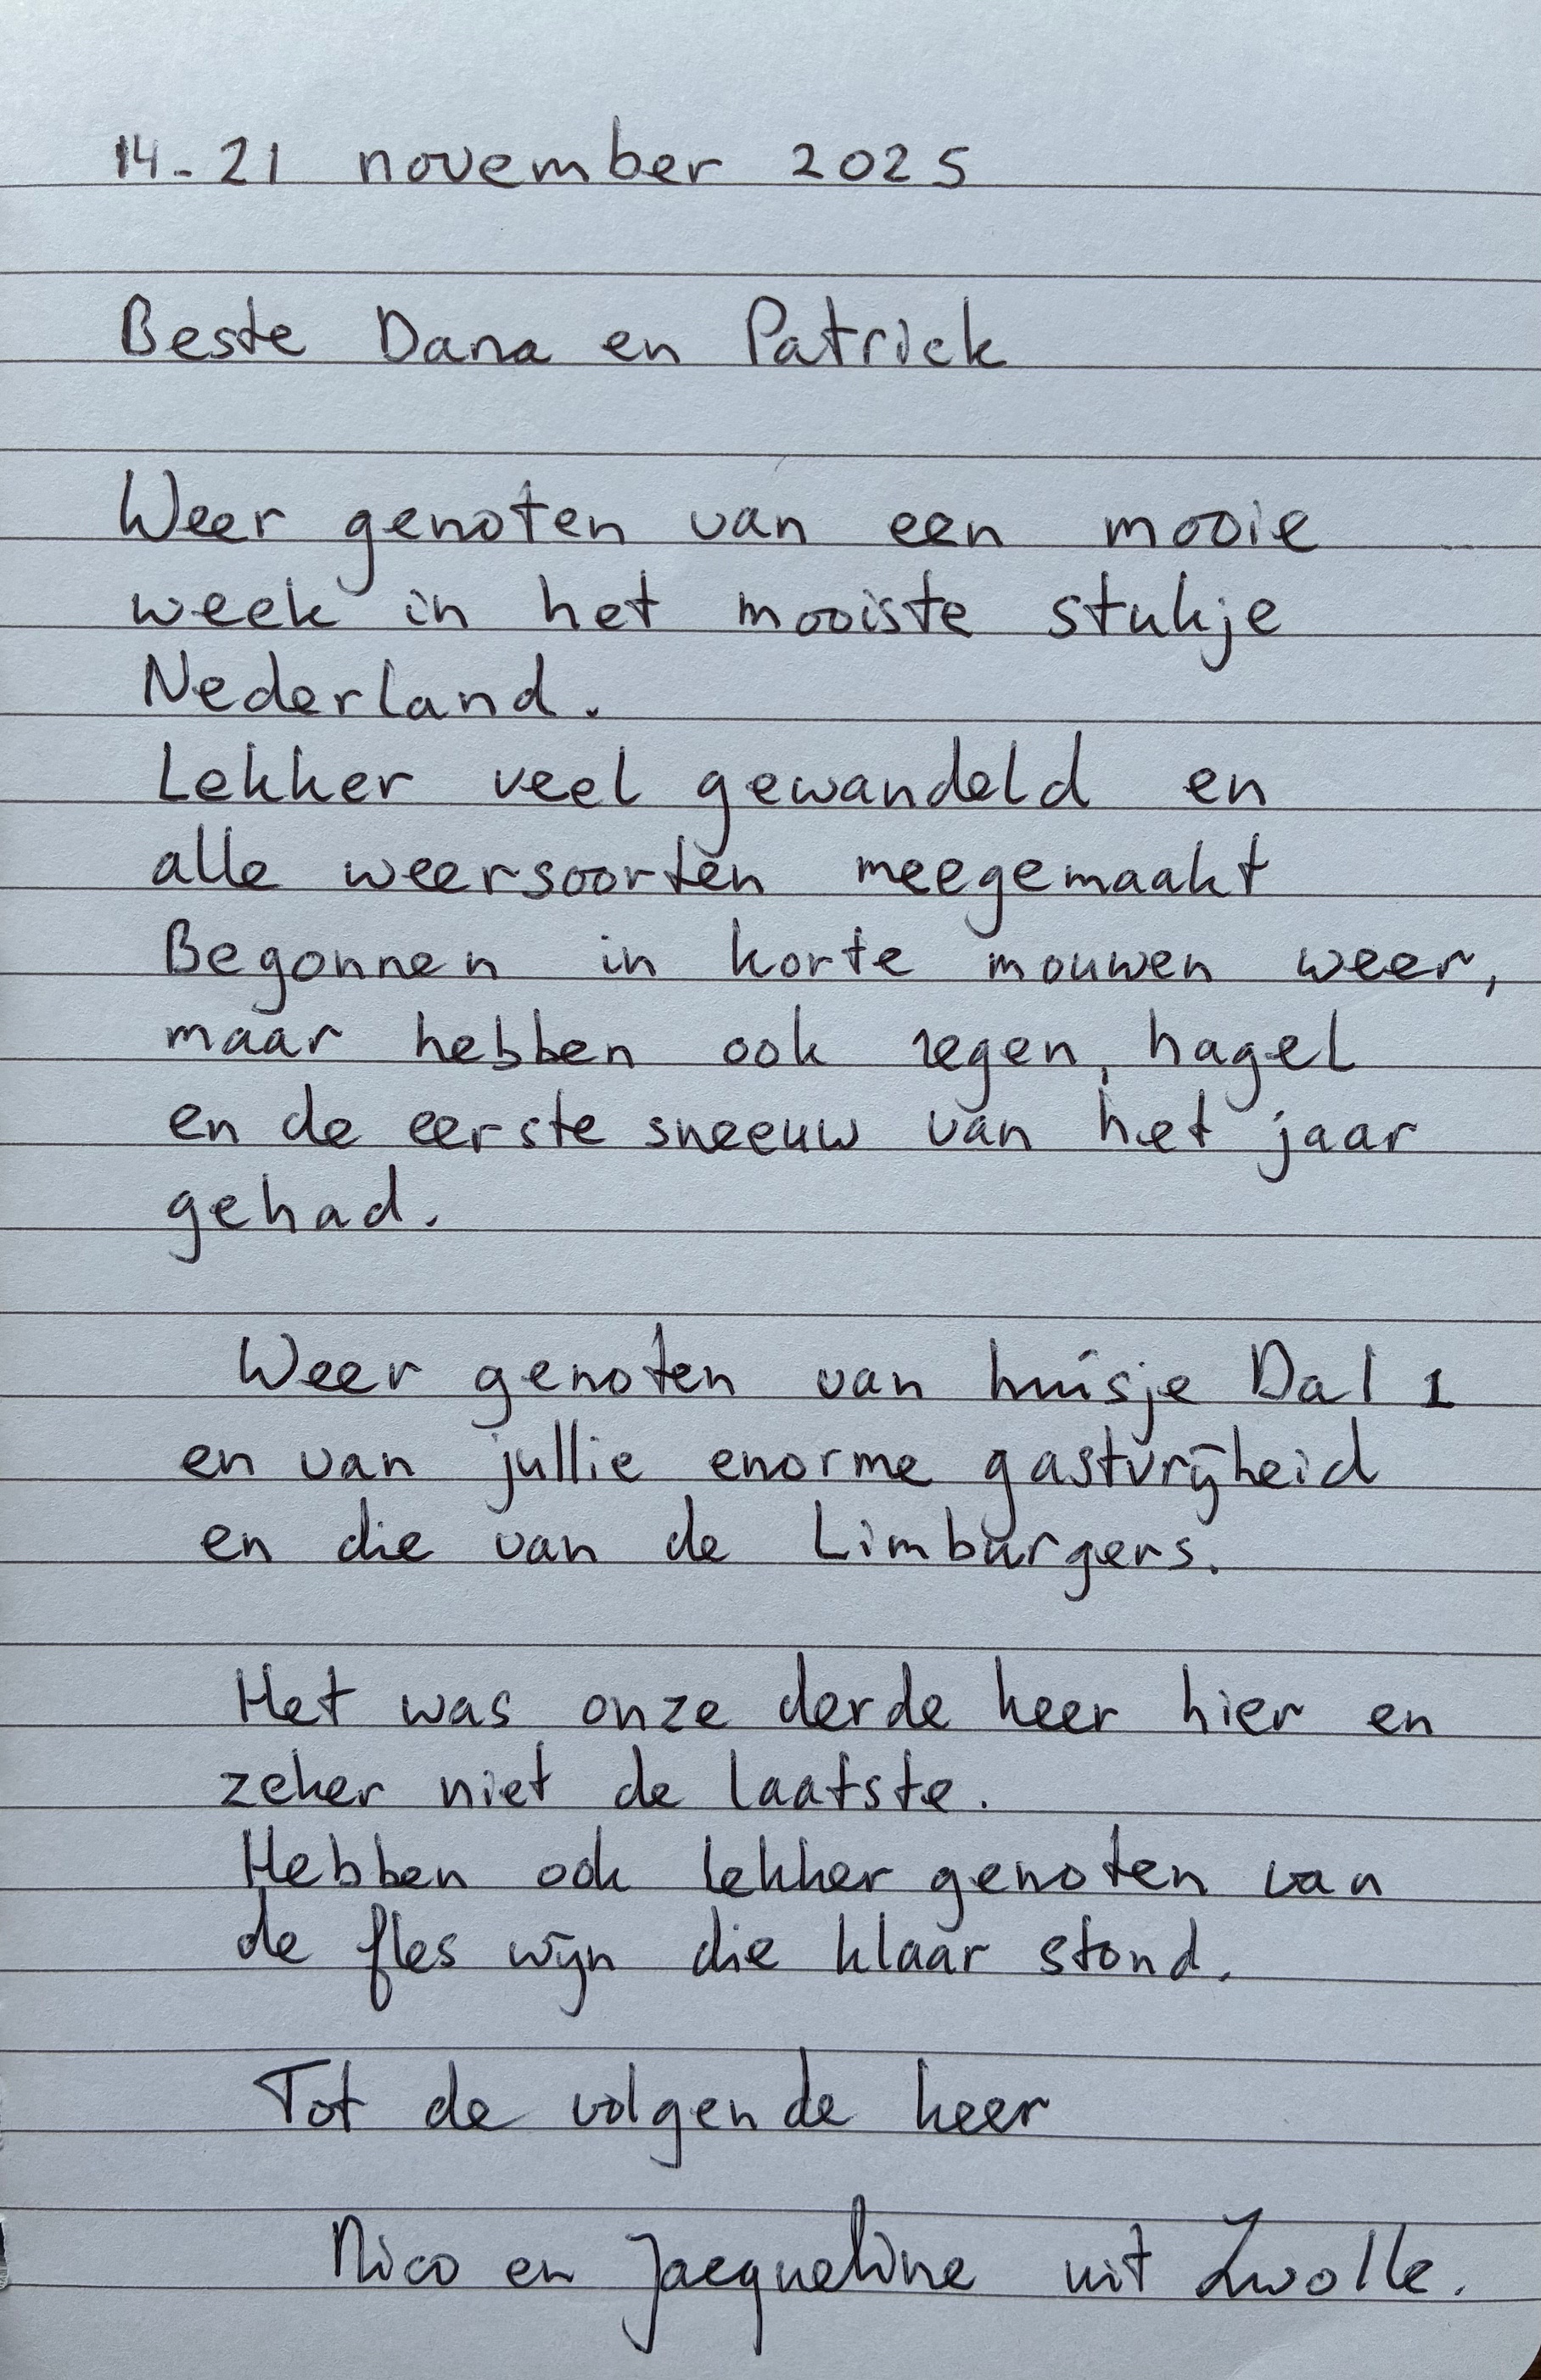 14-21 november 2025
Beste Dana en Patrick
Weer genoten van een mooie
week in het mooiste stukje
Nederland.
Lekker veel gewandeld en
alle weersoorten meegemaakt
Begonnen in korte mouwen weer,
maar hebben ook regen, hagel
en de eerste sneeuw van het jaar
gehad.
Weer genoten van huisje Dal 1
en van jullie enorme gastvrijheid
en die van de Limburgers.
Het was onze derde keer hier en
zeker niet de laatste.
Hebben ook lekker genoten van
de fles wijn die klaar stond.
Tot de volgende keer
Nico en Jacqueline uit Zwolle.